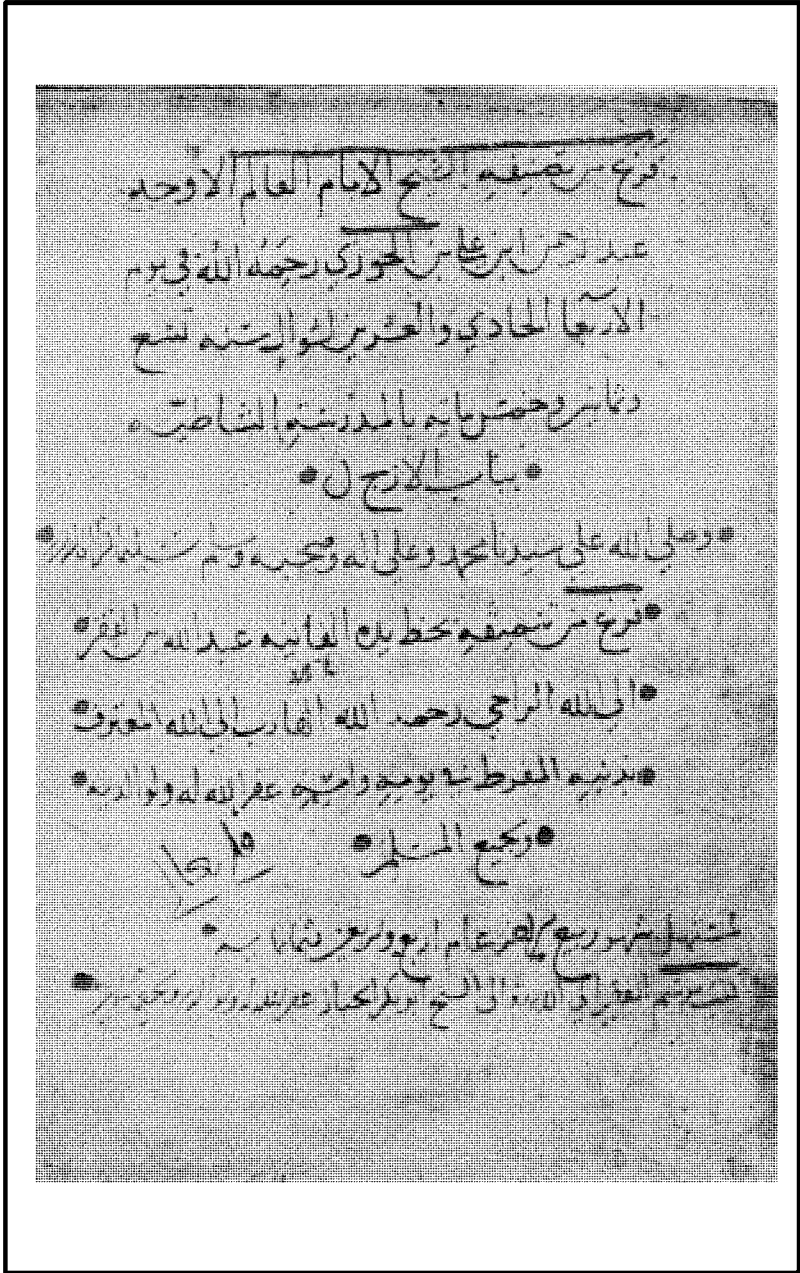 فرغ من تصنيفه الشيخ الامام العالم الاوحد
عبد الرحمن ابن علي بن الجوزي رحمه الله في يوم
الاربعا الحادي والعشرين لشوال سنه تسع
وثمانين وخمس مايه بالمدرسة الشاطيه
بباب الازج ل
وصلي الله على سيدنا محمد وعلى اله وصحبه وسلم تسليما
فرغ من تنصيفه بخط يده الفانيه عبد الله
الى الله الراجي رحمه الله الهارب الى الله المعترف
بذنبه المفرط في يومه وامسه غفر الله له ولوالديه
وبجميع المسلمين
مستهل شهور ربيع عام اربع واربعين وثمانمايه
برسم الفقير الى الله تعالى الشيخ ابو بكر